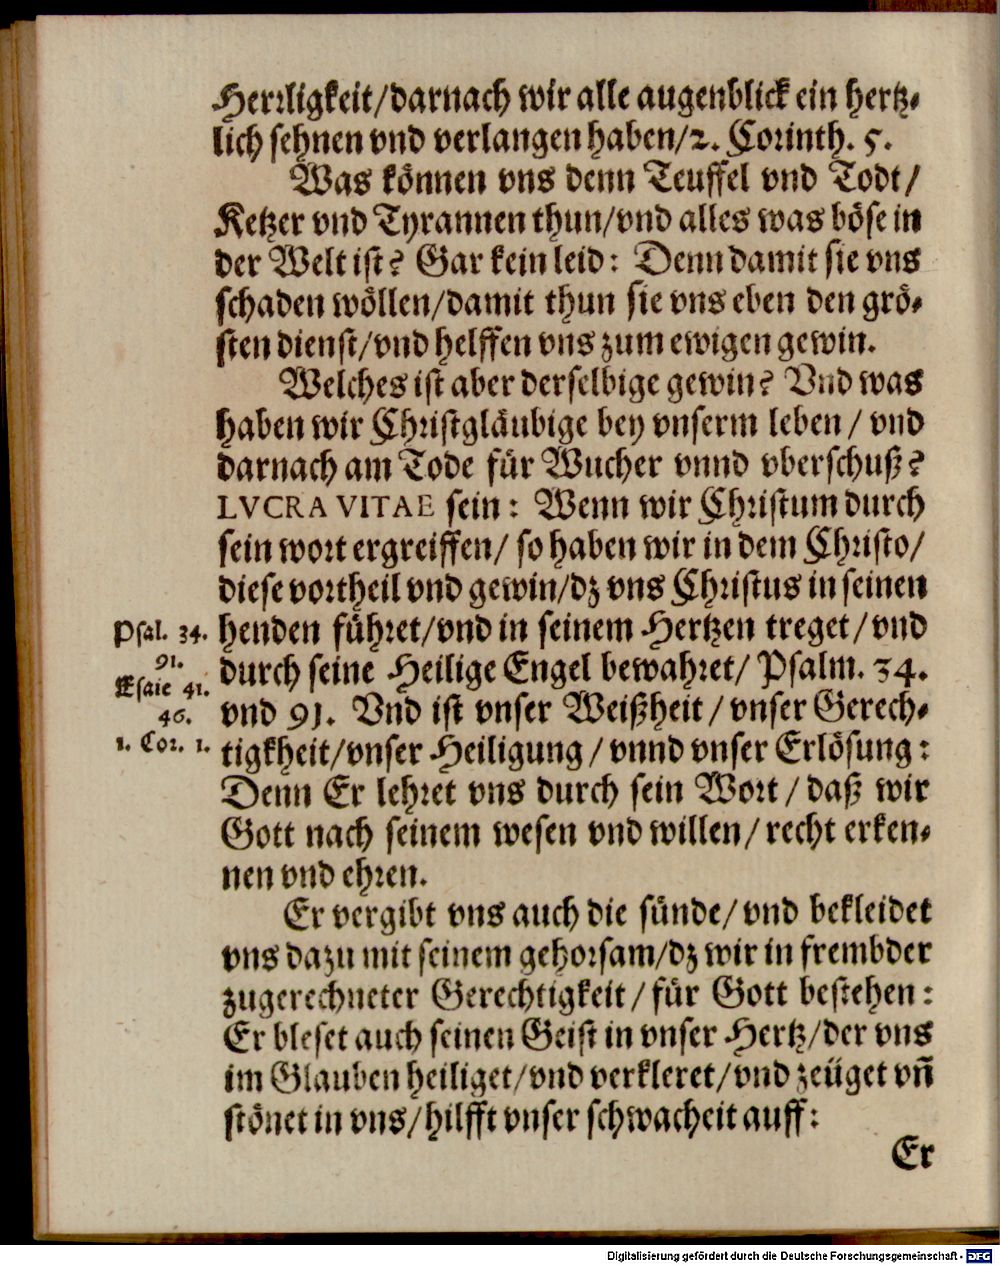 Herrligkeit/darnach wir alle augenblick ein hertz-
lich sehnen vnd verlangen haben/2. Corinth. 5.
Was können vns denn Teuffel vnd Todt/
Ketzer vnd Tyrannen thun/vnd alles was böse in
der Welt ist? Gar kein leid: Denn damit sie vns
schaden wöllen/damit thun sie vns eben den grö-
sten dienst/vnd helffen vns zum ewigen gewin.
Welches ist aber derselbige gewin? Vnd was
haben wir Christgläubige bey vnserm leben/ vnd
darnach am Tode für Wucher vnnd vberschuß?
LVCRA VITAE sein: Wenn wir Christum durch
sein wort ergreiffen/ so haben wir in dem Christo/
diese vortheil vnd gewin/dz vns Christus in seinen
Psal. 34. henden führet/vnd in seinem Hertzen treget/vnd
91.
durch seine Heilige Engel bewahret/ Psalm. 34.
Esaie 41.
46. vnd 91. Vnd ist vnser Weißheit/vnser Gerech-
1. Cor. 1. tigkheit/vnser Heiligung/vnnd vnser Erlösung:
Denn Er lehret vns durch sein Wort/daß wir
Gott nach seinem wesen vnd willen/recht erken-
nen vnd ehren.
Er vergibt vns auch die sünde/vnd bekleidet
vns dazu mit seinem gehorsam/dz wir in frembder
zugerechneter Gerechtigkeit/für Gott bestehen:
Er bleset auch seinen Geist in vnser Hertz/der vns
im Glauben heiliget/vnd verkleret/vnd zeüget vñ
stönet in vns/hilfft vnser schwacheit auff:
Er
Digitalisierung gefördert durch die Deutsche Forschungsgemeinschaft - DFG